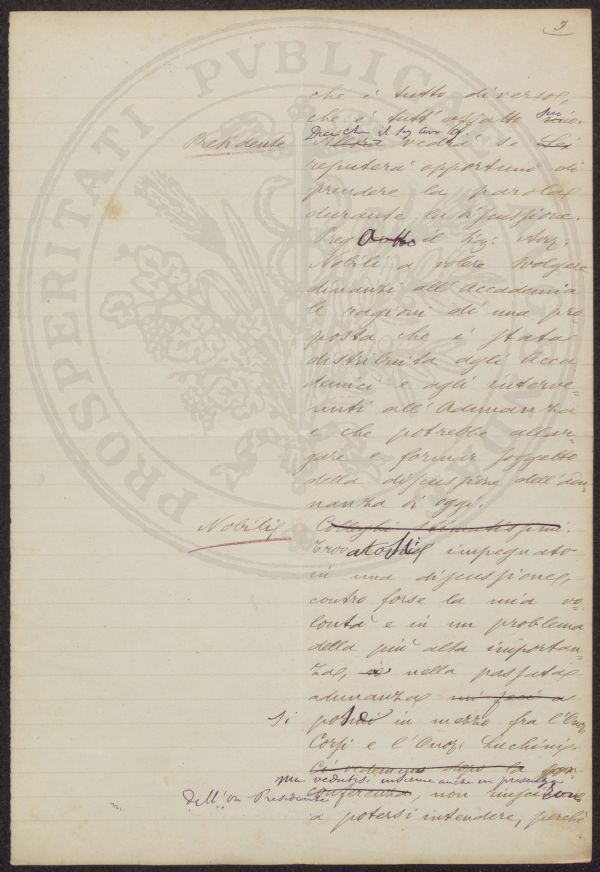 3
PROSPERITATI PVBLICAE
che è tutto diverso,
che è tutt' affatto
Dica che il Sig. Avv.
Presidente Allora vedrà se Lei
reputerà opportuno di
prendere la parola
durante la discussione.
Prego Otto il Sig: Avv:
Nobili a volere svolgere
dinanzi all'Accademia
le ragioni di una pro
posta che è stata
distribuita agli Acca
demici e agli interve
nuti all'Adunanza
e che potrebbe allar
gare e formar soggetto
della discussione dell'adu
nanza di oggi.
Nobili Colleghi stimatissimi.
Trovatosi impegnato
in una discussione,
contro forse la mia vo
lontà e in un problema
della più alta importan
za, e nella passata
adunanza mi feci a
si posi in mezzo fra l'Onor
Corsi e l'Onor: Luchini.
Ci vedemmo dopo la
ma vedutisi insieme anche in presenza
dell'on Presidente conferenza, non riuscirono
a potersi intendere, perchè